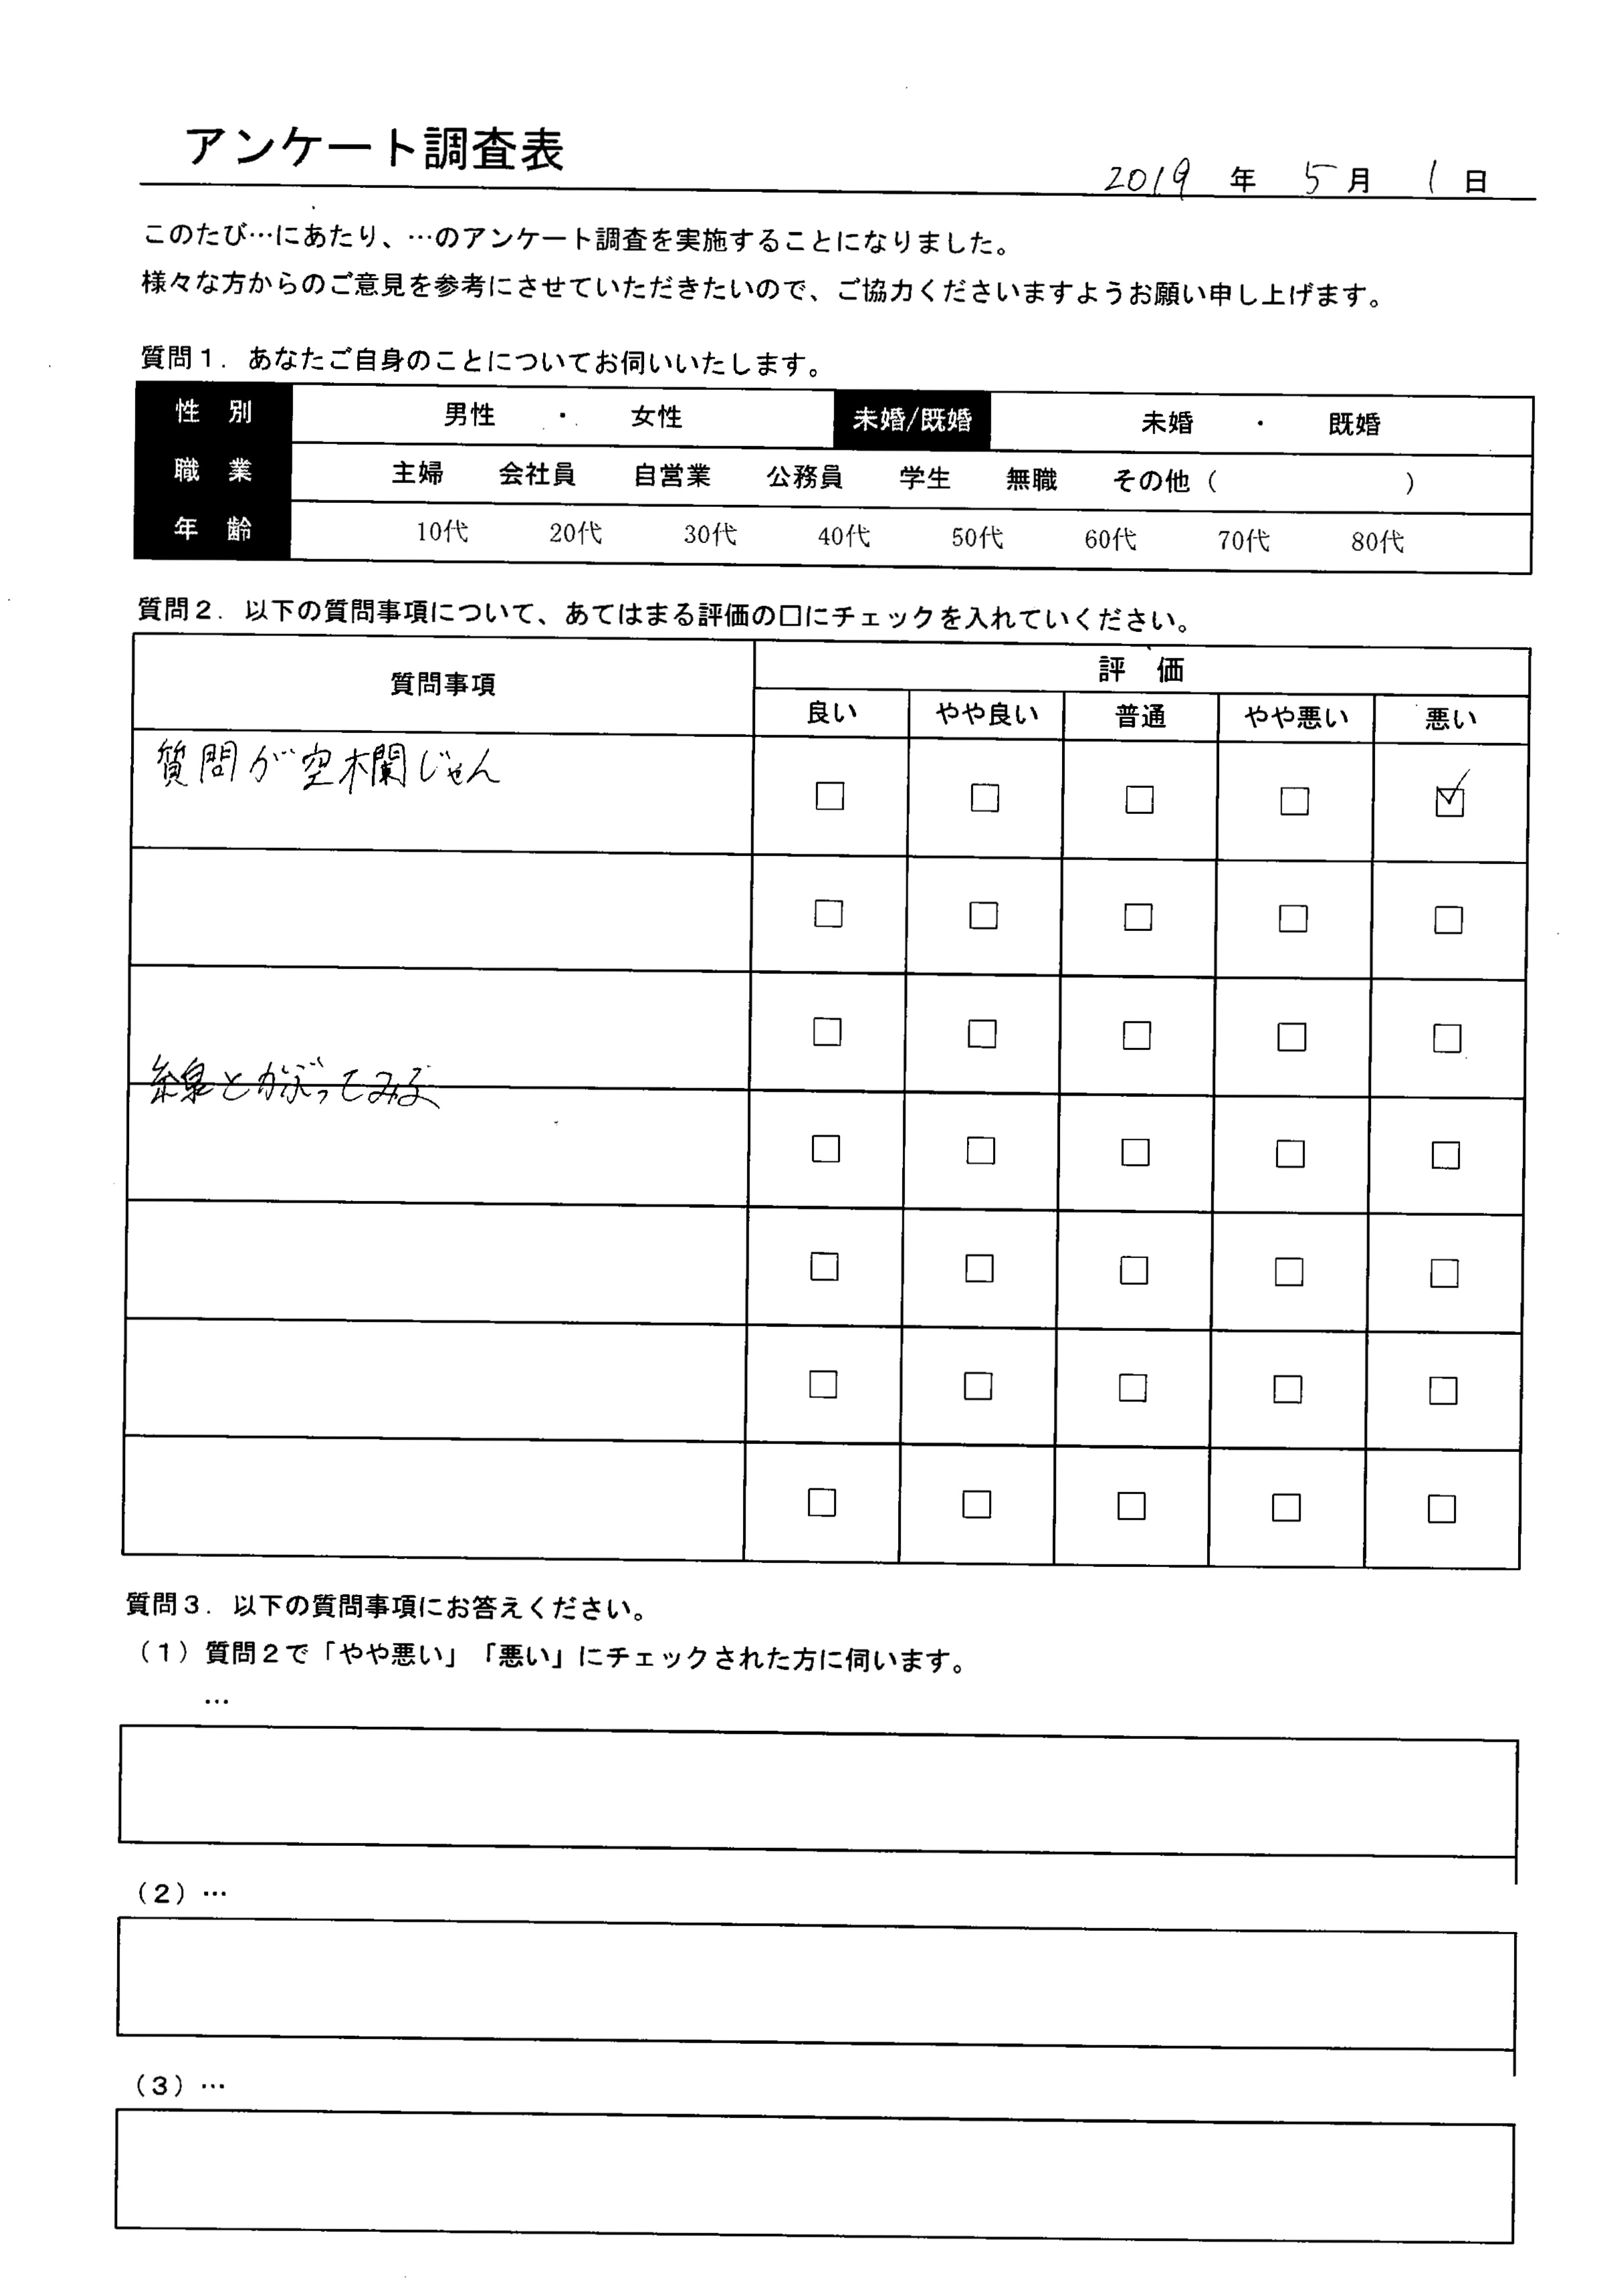 アンケート調査表
2019 年 5 月 1 日
このたび…にあたり、…のアンケート調査を実施することになりました。
様々な方からのご意見を参考にさせていただきたいので、ご協力くださいますようお願い申し上げます。
質問１．あなたご自身のことについてお伺いいたします。
性 別 男性 ・ 女性 未婚/既婚 未婚 ・ 既婚
職 業 主婦 会社員 自営業 公務員 学生 無職 その他（ ）
年 齢 10代 20代 30代 40代 50代 60代 70代 80代
質問２．以下の質問事項について、あてはまる評価の口にチェックを入れていください。
質問事項 評 価
良い やや良い 普通 やや悪い 悪い
質問が空木欄じゃん □ □ □ □ ☑
□ □ □ □ □
□ □ □ □ □
線とかぶってみる
□ □ □ □ □
□ □ □ □ □
□ □ □ □ □
□ □ □ □ □
質問３．以下の質問事項にお答えください。
（１）質問２で「やや悪い」「悪い」にチェックされた方に伺います。
…
（２）…
（３）…